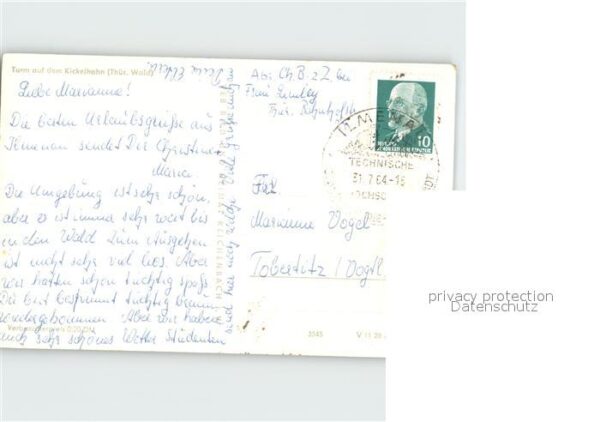 Turm auf dem Kickelhahn (Thür. Wald)
Liebe Marianne!
Die besten Urlaubsgrüße aus
Ilmenau sendet Dir Christine
Maria.
Die Umgebung ist sehr schön,
aber es ist immer sehr weit bis
in den Wald. Zum Ausgehen
ist nicht sehr viel los. Aber
wir hatten schon tüchtig Spaß.
bestimmt tüchtig braun
Aber wir haben
auch sehr schönes Wetter. Studenten
sind hier noch welche. Viele Grüße
Deine Eltern.
Verbraucherpreis 0,20 DM
REICHENBACH
Abs. Ch. B. z Z bei
Frau
Ilm. Bahnhofstr.
10
ILMENAU
TECHNISCHE
31.7.64-18
HOCHSCHULE
Frl.
Marianne Vogel
Tobertitz / Vogtl.
3545
V 11 28
privacy protection
Datenschutz